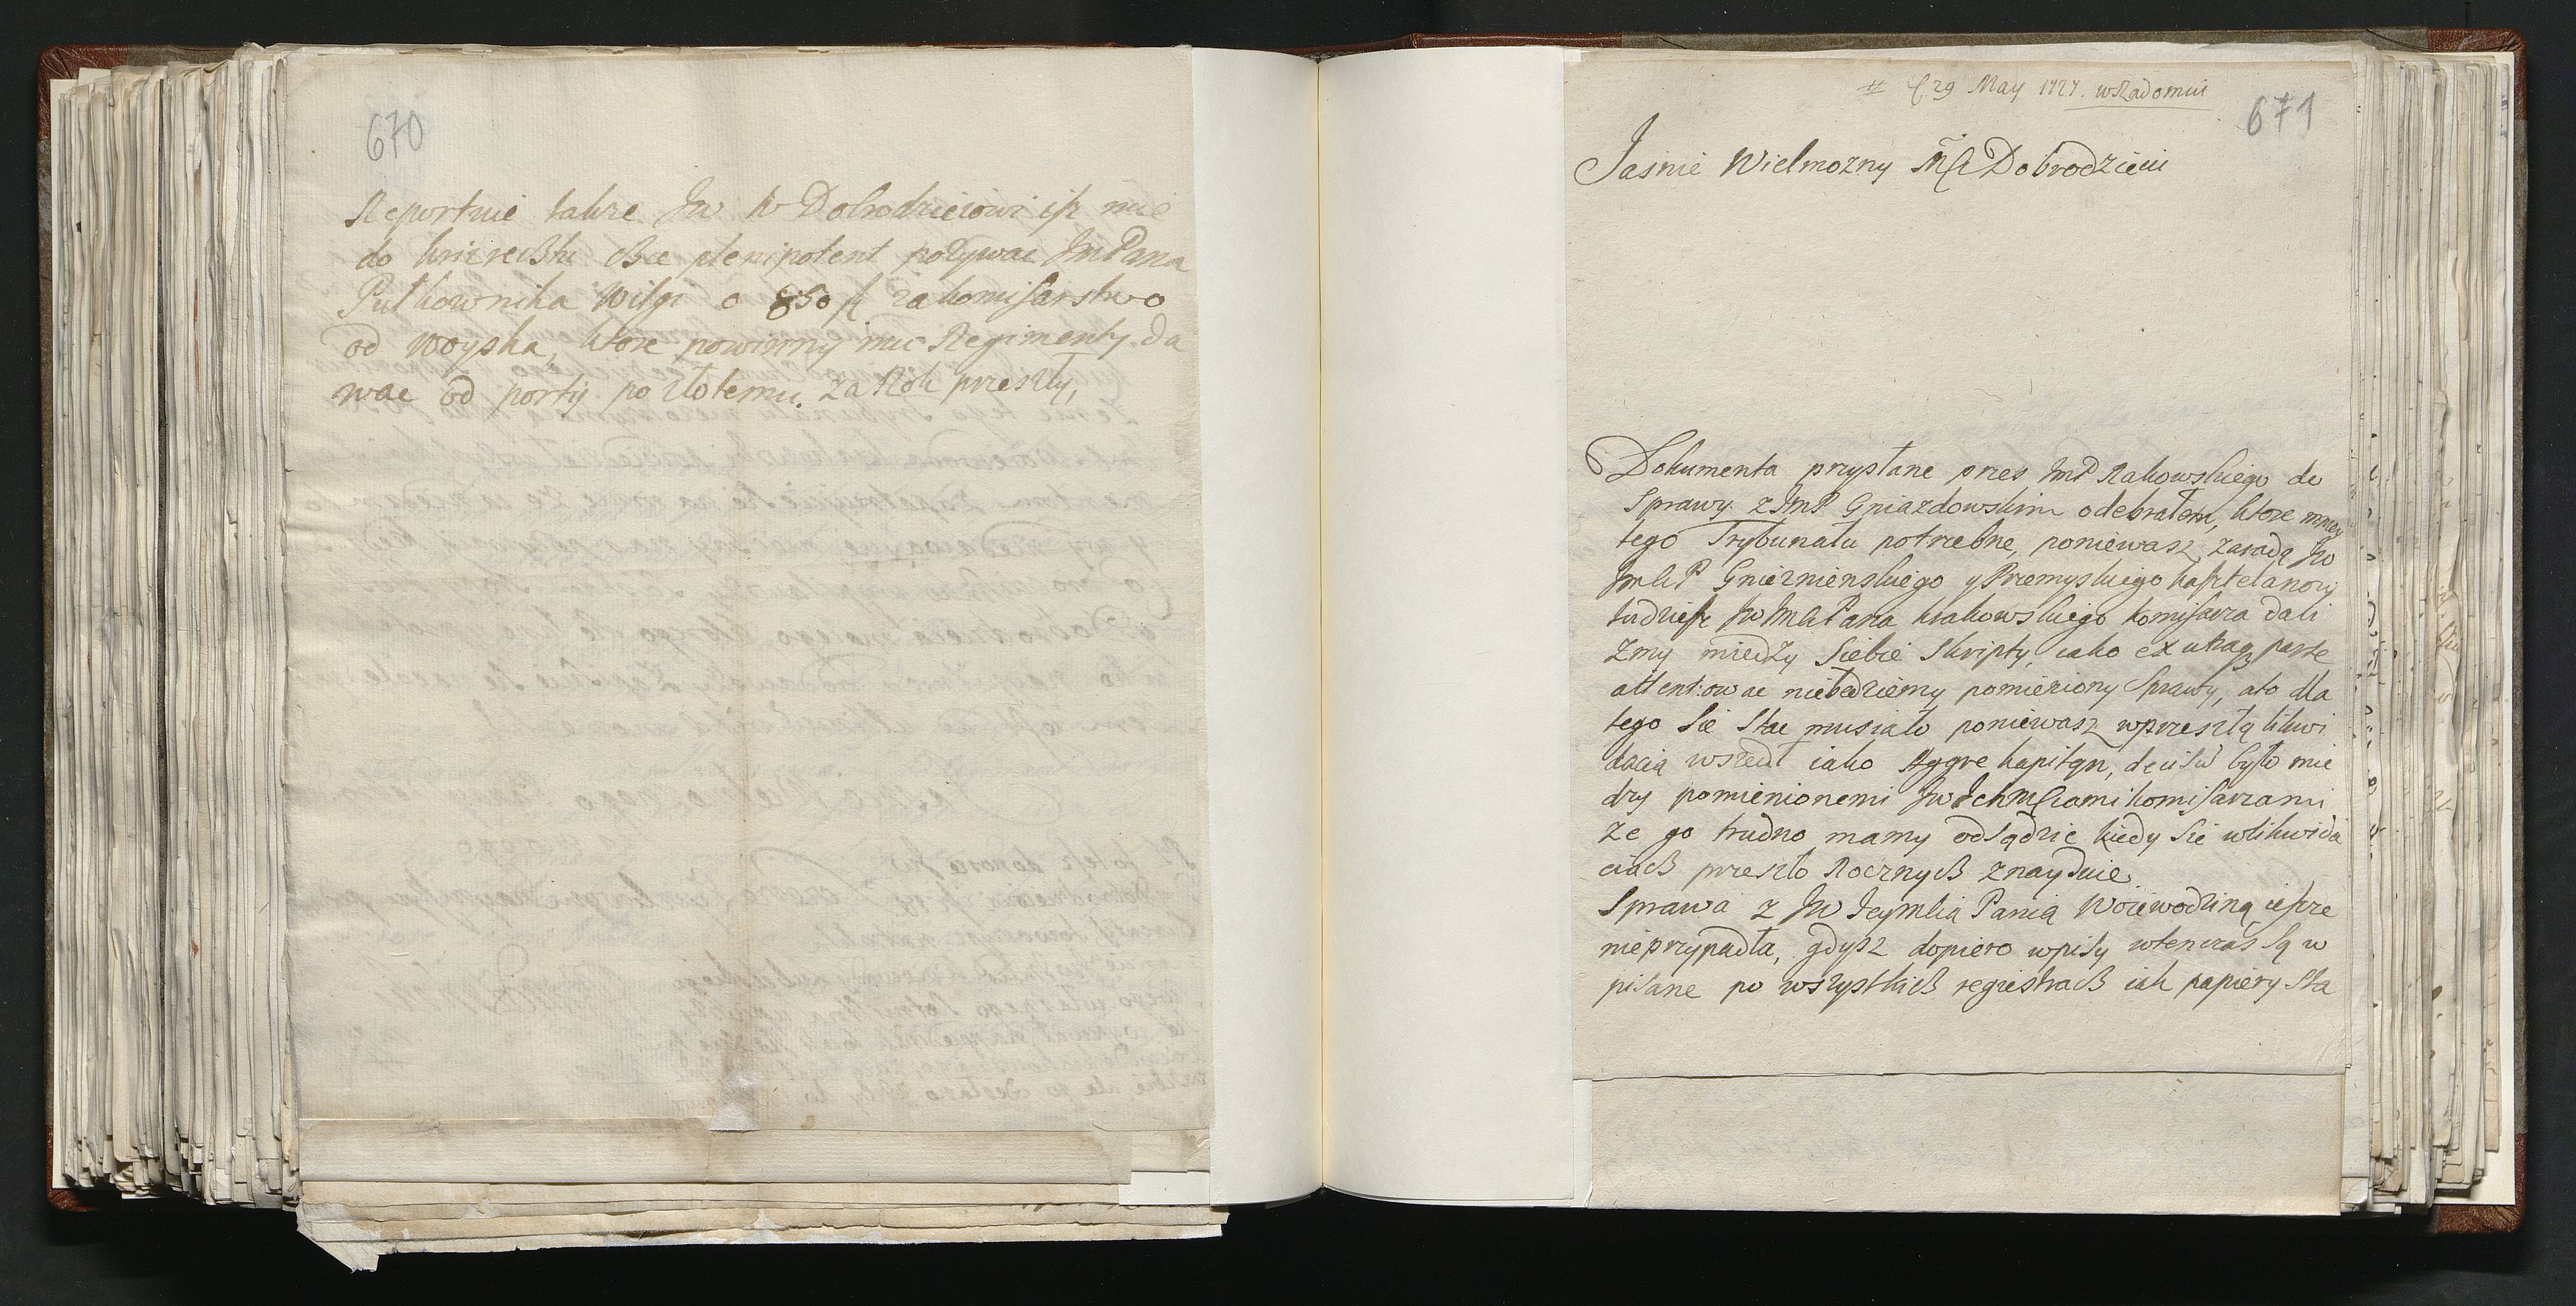 670
Reportuie takze Jw W Dobrodzieiowi isz mie
do hrii chce plenipotent pozywac ImPana
Pułkownika Wilgi o 850 fl za komisarstwo
od woyska, ktore powinny mie Regimenty da
wac od porty po złotemu. za Rok przeszły,
29 May 1727. w Radomiu
671
Jasnie Wielmozny Mći Dobrodzieiu
Dokumenta przysłane przes ImP Rakowskiego do
Sprawy z ImP Gniazdowskim odebrałem, ktore
tego Trybunału potrzebne, poniewasz za radą Jw
ImCiP Gnieznienskiego y Przemyskiego kasztelanow
tudziesz Jw ImCi Pana krakowskiego komisarza dali
zmy między siebie skripty, iako ex utraq parte
attentowac niebędziemy pomieniony Sprawy, ato dla
tego sie stac musiało poniewasz w przeszłą likwi
dacią wszedł iako Aggre kapitan, było mie
dzy pomienionemi Jw Ichmściami komisarzami
ze go trudno mamy odsądzic kiedy sie w likwida
ciach przeszło Rocznych znayduie.
Sprawa z Jw Ieymcią Panią Woiewodziną ieszcze
nie przypadła, gdysz dopiero wpisy wtenczas są w
pisane po wszystkich regiestrach iak papiery sta